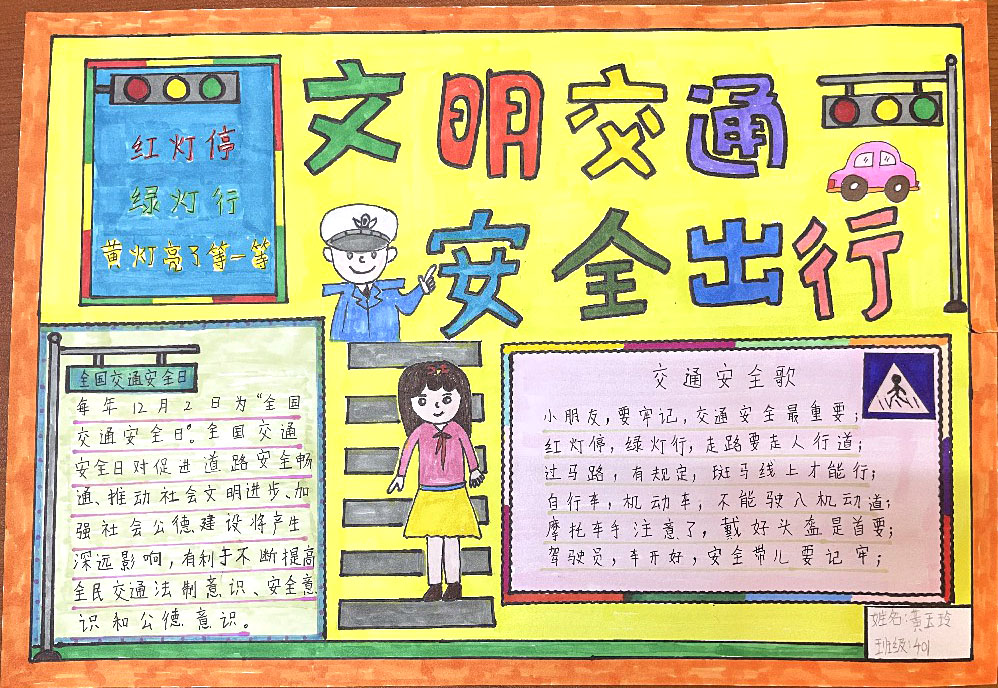 文明交通
安全出行
红灯停
绿灯行
黄灯亮了等一等
全国交通安全日
每年12月2日为“全国
交通安全日”。全国交通
安全日对促进道路安全畅
通、推动社会文明进步、加
强社会公德建设将产生
深远影响,有利于不断提高
全民交通法制意识、安全意
识和公德意识。
交通安全歌
小朋友,要牢记,交通安全最重要;
红灯停,绿灯行,走路要走人行道;
过马路,有规定,斑马线上才能行;
自行车,机动车,不能驶入机动道;
摩托车手注意了,戴好头盔是首要;
驾驶员,车开好,安全带儿要记牢;
姓名:黄玉玲
班级:401